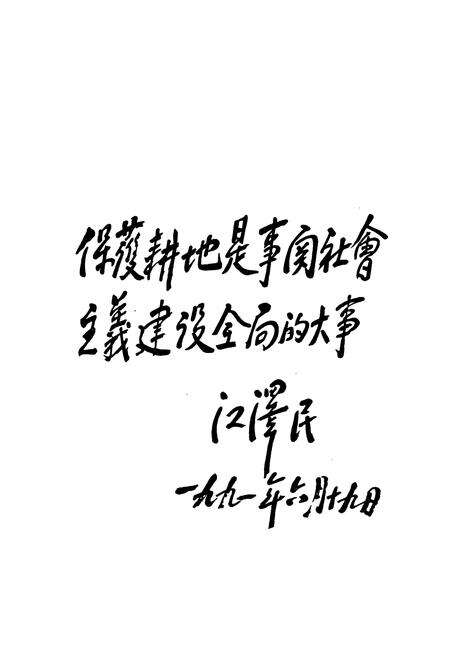 保護耕地是事関社會
主義建设全局的大事
江澤民
一九九一年六月十九日